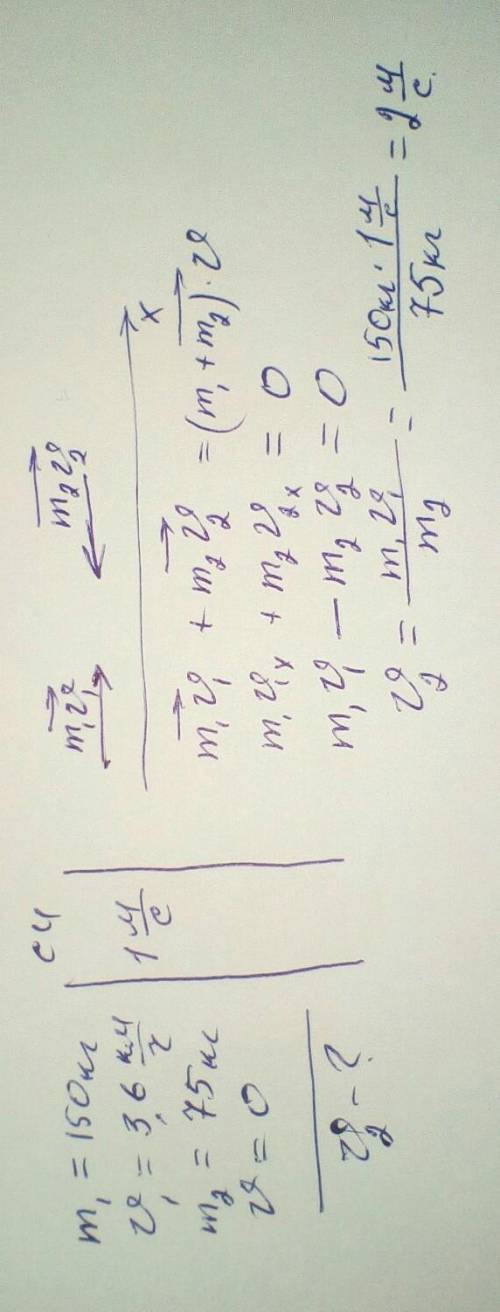 m₁ = 150кг
𝜗₁ = 3,6 км/ч
m₂ = 75кг
𝜗 = 0
𝜗₂ - ?
СИ
1 м/с
m₁𝜗₁ m₂𝜗₂
x
m₁𝜗₁ + m₂𝜗₂ = (m₁ + m₂)·𝜗
m₁𝜗₁ₓ + m₂𝜗₂ₓ = 0
m₁𝜗₁ − m₂𝜗₂ = 0
𝜗₂ = m₁𝜗₁/m₂ = 150кг · 1 м/с / 75кг = 2 м/с